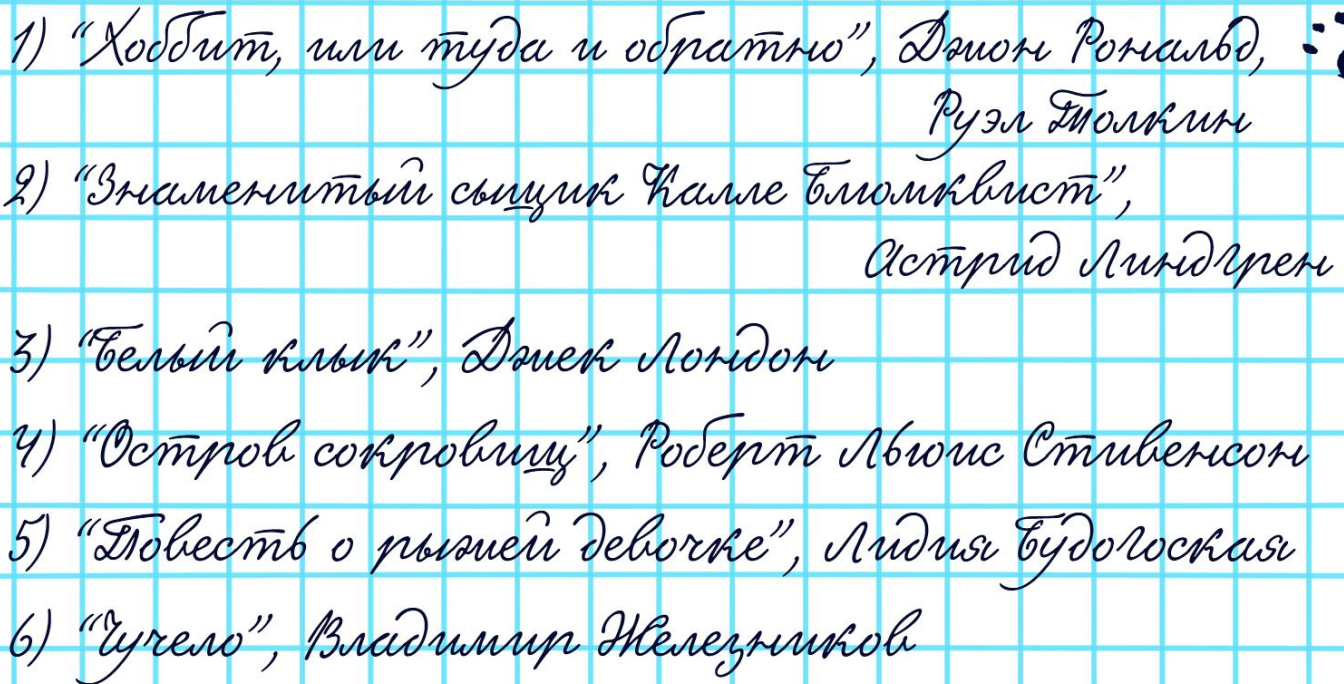 1) “Хоббит, или туда и обратно”, Джон Рональд,
Руэл Толкин
2) “Знаменитый сыщик Калле Блюмквист”,
Астрид Линдгрен
3) “Белый клык”, Джек Лондон
4) “Остров сокровищ”, Роберт Льюис Стивенсон
5) “Повесть о рыжей девочке”, Лидия Будогоская
6) “Чучело”, Владимир Железников